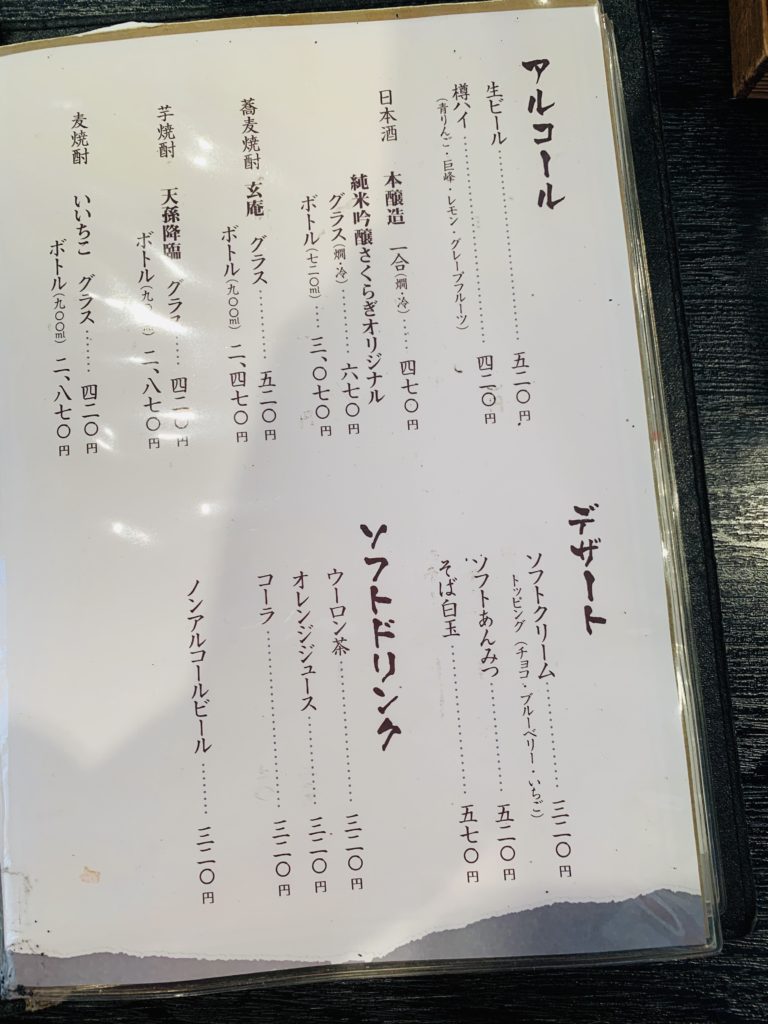 アルコール
生ビール……………………五二〇円
樽ハイ……………………四二〇円
（青りんご・巨峰・レモン・グレープフルーツ）
日本酒 本醸造 一合（燗・冷）……四七〇円
純米吟醸さくらぎオリジナル
グラス（燗・冷）…………六七〇円
ボトル（七二〇㎖）……三、〇七〇円
蕎麦焼酎 玄庵 グラス…………五二〇円
ボトル（九〇〇㎖）二、四七〇円
芋焼酎 天孫降臨 グラス……四二〇円
ボトル（九〇〇㎖）二、八七〇円
麦焼酎 いいちこ グラス………四二〇円
ボトル（九〇〇㎖）二、八七〇円
デザート
ソフトクリーム……………三二〇円
トッピング（チョコ・ブルーベリー・いちご）
ソフトあんみつ……………五二〇円
そば白玉……………………五七〇円
ソフトドリンク
ウーロン茶……………………三二〇円
オレンジジュース……………三二〇円
コーラ……………………三二〇円
ノンアルコールビール………三二〇円